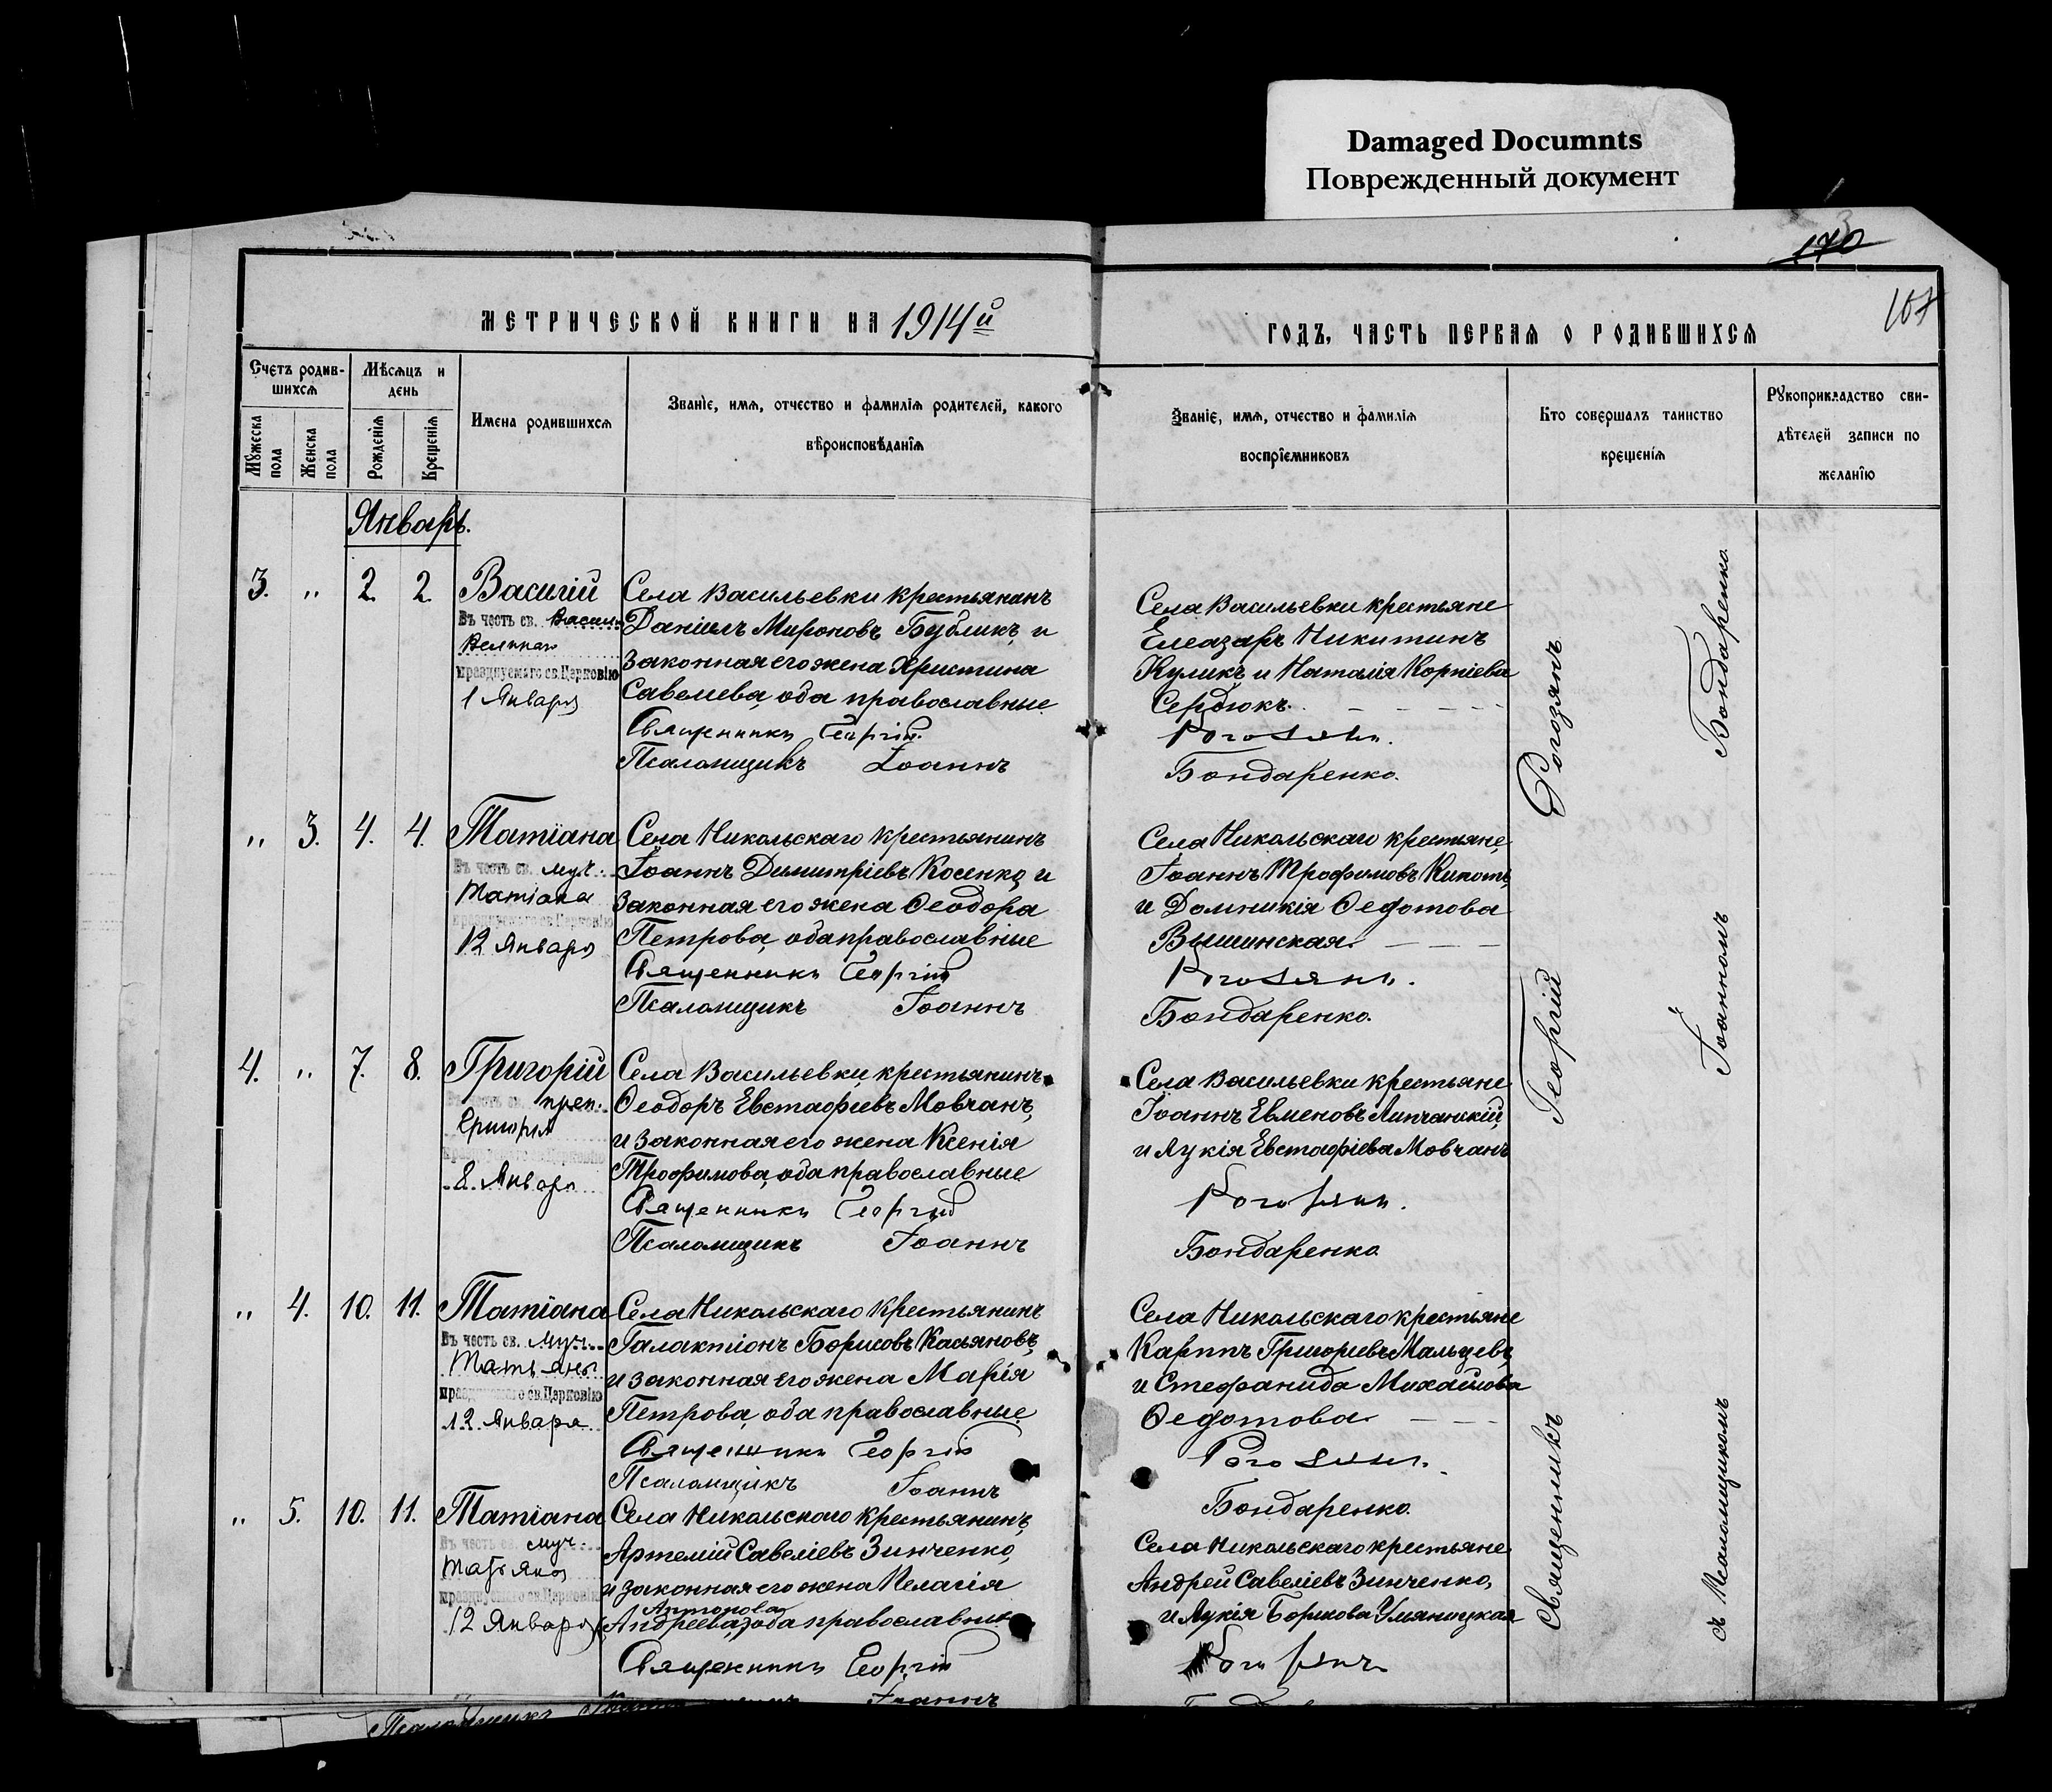 Damaged Documnts
Поврежденный документ
170
167
МЕТРИЧЕСКОЙ КНИГИ НА 1914й
ГОДЪ, ЧАСТЬ ПЕРВАЯ О РОДИВШИХСЯ
Счетъ родив-
шихся
Мѣсяцъ и
день
Мужеска
пола
Женска
пола
Рожденія
Крещенія
Имена родившихся
Званіе, имя, отчество и фамилія родителей, какого
вѣроисповѣданія
Званіе, имя, отчество и фамилія
воспріемниковъ
Кто совершалъ таинство
крещенія
Рукоприкладство сви-
дѣтелей записи по
желанію
Январь.
3. " 2 2 Василій
Въ честь св. Васил.
Великаго
празднуемаго св. Церковію
1 Января
Села Васильевки крестьянинъ
Даніилъ Мироновъ Бубликъ, и
законная его жена Христина
Савелиева, оба православные
Священникъ Георгій
Псаломщикъ Іоаннъ
Села Васильевки крестьяне
Елеазаръ Никитинъ
Куликъ и Наталія Корніева
Сердюкъ.
Рогозянъ.
Бондаренко.
" 3. 4. 4. Татіана
Въ честь св. муч.
Татіана
празднуемаго св. Церковію
12 Января
Села Никольскаго крестьянинъ
Іоаннъ Димитріевъ Косенко, и
законная его жена Ѳеодора
Петрова, оба православные
Священникъ Георгій
Псаломщикъ Іоаннъ
Села Никольскаго крестьяне,
Іоаннъ Трофимовъ Кипоть,
и Домникія Ѳедотова
Вышинская.
Рогозянъ.
Бондаренко.
4. " 7. 8. Григорій
Въ честь св. преп.
Григорія
празднуемаго св. Церковію
8 Января
Села Васильевки крестьянинъ
Ѳеодоръ Евстафіевъ Мовчанъ,
и законная его жена Ксенія
Трофимова, оба православные
Священникъ Георгій
Псаломщикъ Іоаннъ
Села Васильевки крестьяне
Іоаннъ Евменовъ Липчанскій,
и Лукія Евстафіева Мовчанъ
Рогозянъ.
Бондаренко
" 4. 10. 11. Татіана
Въ честь св. муч.
Татьяны
празднуемаго св. Церковію
12 Января
Села Никольскаго крестьянинъ
Галактіонъ Борисовъ Касьяновъ,
и законная его жена Марія
Петрова, оба православные
Священникъ Георгій
Псаломщикъ Іоаннъ
Села Никольскаго крестьяне
Карпъ Григорьевъ Мальцевъ,
и Стефанида Михайлова
Ѳедотова.
Рогозянъ.
Бондаренко.
" 5. 10. 11. Татіана
Въ честь св. муч.
Татьяна
празднуемаго св. Церковію
12 Января
Села Никольскаго крестьянинъ,
Артемій Савеліевъ Зинченко,
и законная его жена Пелагія
Антонова
Андреева, оба православные
Священникъ Георгій
Іоаннъ
Села Никольскаго крестьяне
Андрей Савеліевъ Зинченко,
и Лукія Борисова Уманицкая
Рогозянъ
Священникъ Георгій Рогозянъ
съ Псаломщикомъ Іоанномъ Бондаренко
Псаломщикъ